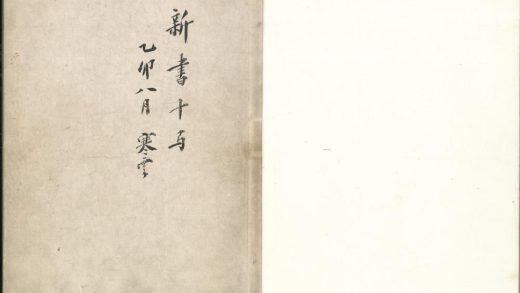 新書十弓
乙卯八月 寒雲